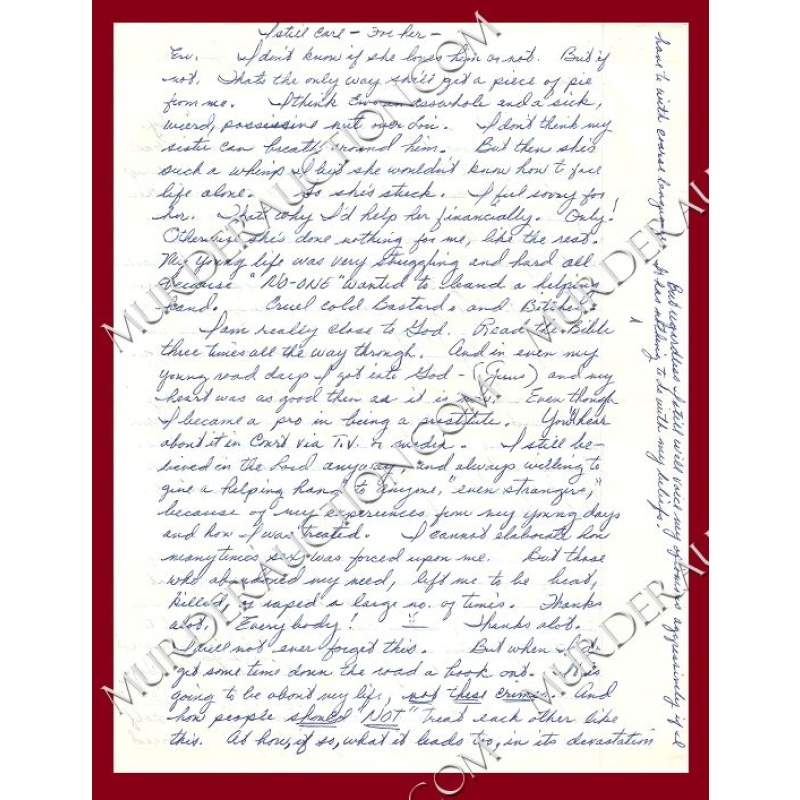 I still care - For her -
Erv. I don't know if she loves him or not. But if
not. Thats the only way she'll get a piece of pie
from me. I think Erv an asswhole and a sick,
wierd, possissive nut over Lori. I don't think my
sister can breath around him. But then she's
such a whimp I bet she wouldn't know how to face
life alone. So she's stuck. I ful sorry for
her. That why I'd help her financially. Only!
Otherwise she's done nothing for me, like the rest.
My young life was very struggling and hard all
because "NO-ONE" wanted to leand a helping
hand. Cruel cold Bastards and Bitches.
I am really close to God. Read the Bible
three times all the way through. And in even my
young road days I got into God - (Jesus) and my
heart was as good then as it is now. Even though
I became a pro in being a prostitute. You'll hear
about it in Court via T.V. or media. I still be-
lieved in the Lord anyway, and always willing to
give a helping hand to "anyone," "even strangers,"
because of my experiences from my young days
and how I was treated. I cannot elaborate how
many times sex was forced upon me. But those
who abandoned my need, left me to be beat,
killed, or raped a large no. of times. Thanks
alot. Everybody! Thanks alot.
I will not ever forget this. But when I
get some time down the road a book out. It is
going to be about my life, not these crimes. And
how people should "NOT" treat each other like
this. At how, if so, what it leads too, in its devastation
But regardless I still will voice my opinions aggressively if I
have to with coarse language. It has nothing to do with my beliefs.
MURDERAUCTION.COM